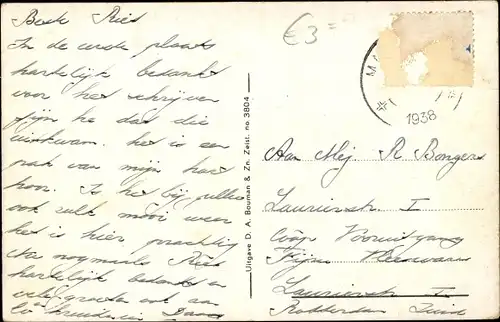 Beste Riet
In de eerste plaats
hartelijk bedankt
voor het schrijven
fijn he dat die
uitkwam. het is een
pak van mijn hart
hoor. Is het bij jullie
ook zulk mooi weer
het is hier prachtig
nogmaals Riet
hartelijk bedankt en
vele groeten ook aan
€3=
1938
Uitgave D. A. Bouman & Zn. Zeist. no 3804
Aan Mej R Bongers
Laurierstr I
Coöp Vooruitgang
Fijne
Laurierstr I
Rotterdam Zuid